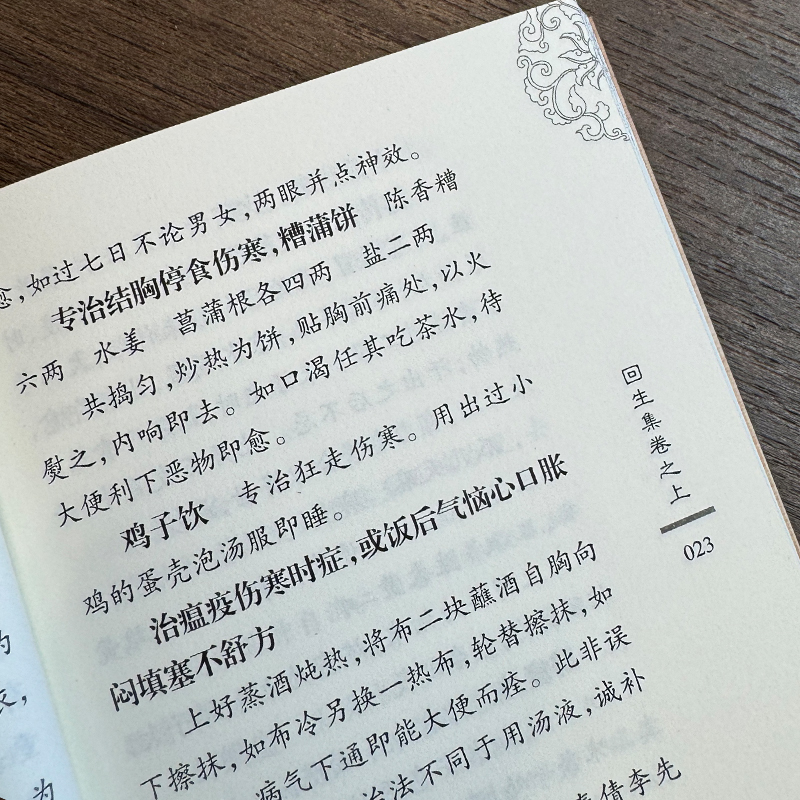 愈，如过七日不论男女，两眼并点神效。
专治结胸停食伤寒，糟蒲饼　陈香糟
六两　水姜　菖蒲根各四两　盐二两
共捣匀，炒热为饼，贴胸前痛处，以火
熨之，内响即去。如口渴任其吃茶水，待
大便利下恶物即愈。
鸡子饮　专治狂走伤寒。用出过小
鸡的蛋壳泡汤服即睡。
治瘟疫伤寒时症，或饭后气恼心口胀
闷填塞不舒方
上好蒸酒炖热，将布二块蘸酒自胸向
下擦抹，如布冷另换一热布，轮替擦抹，如
病气下通即能大便而痊。此非误
治法不同于用汤液，诚补
倩李先
回生集卷之上
023
为